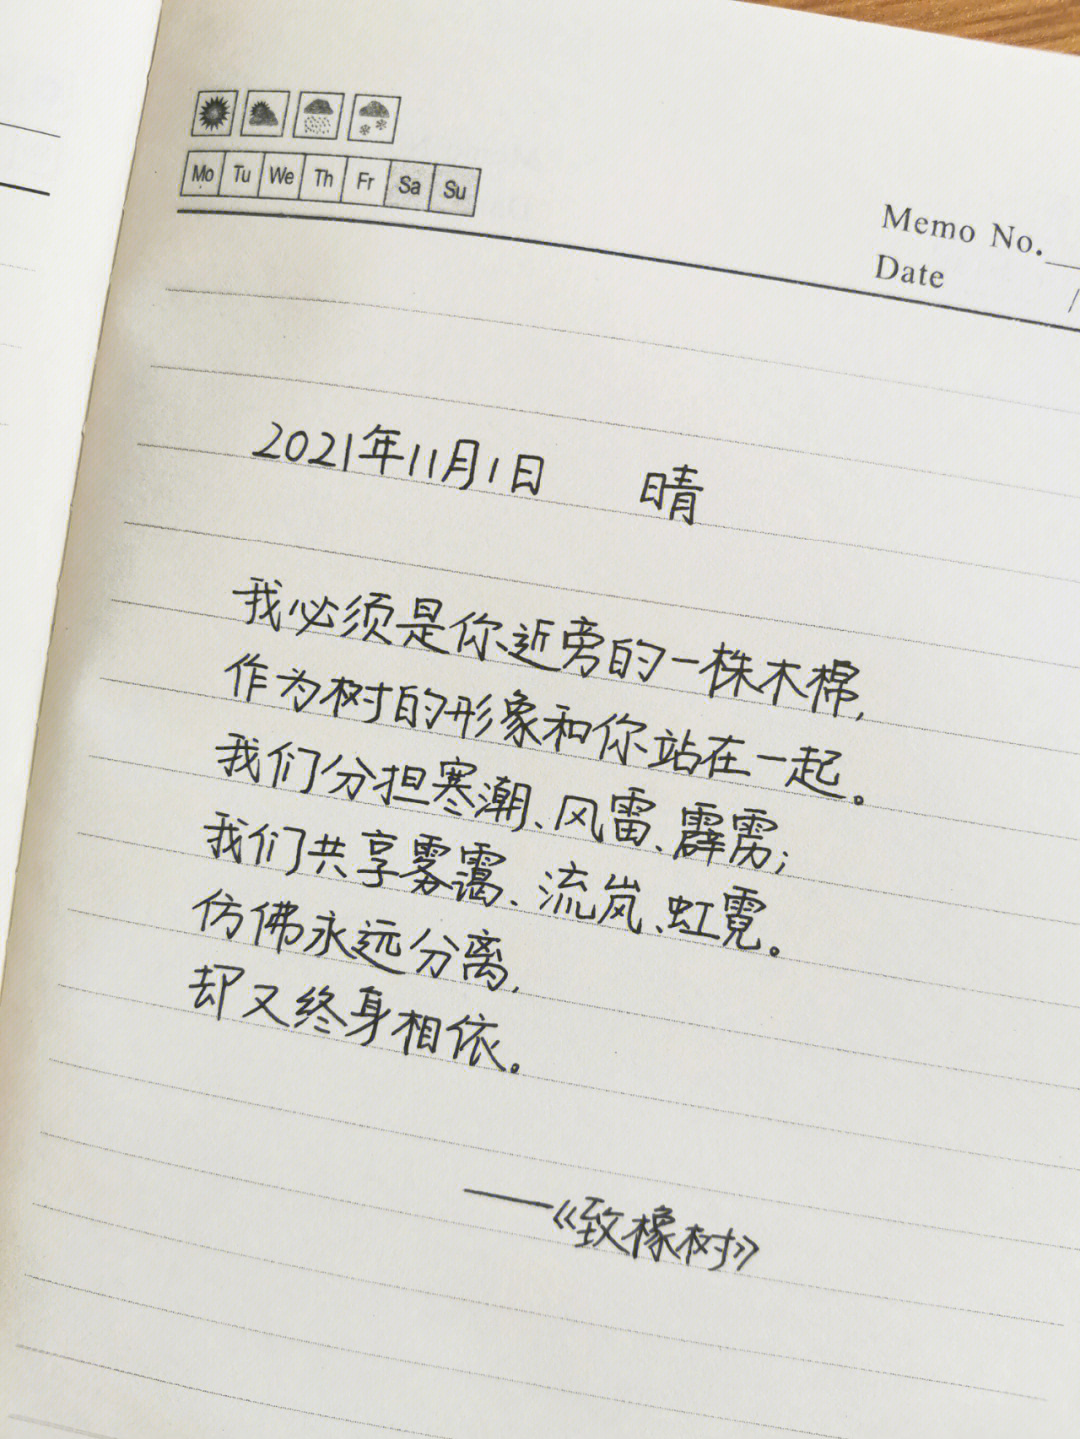 Mo Tu We Th Fr Sa Su
Memo No.
Date /
2021年11月1日 晴
我必须是你近旁的一株木棉,
作为树的形象和你站在一起。
我们分担寒潮、风雷、霹雳;
我们共享雾霭、流岚、虹霓。
仿佛永远分离,
却又终身相依。
——《致橡树》